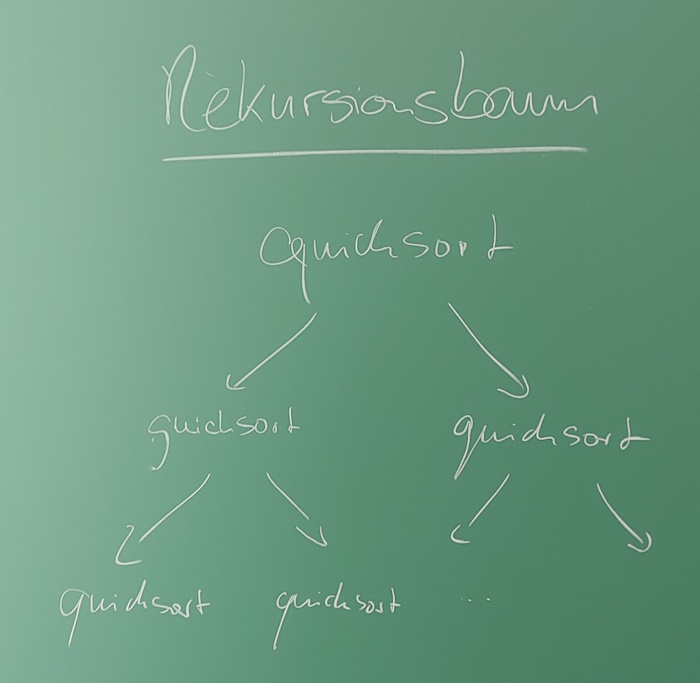 Rekursionsbaum
quicksort
quicksort quicksort
quicksort quicksort ...